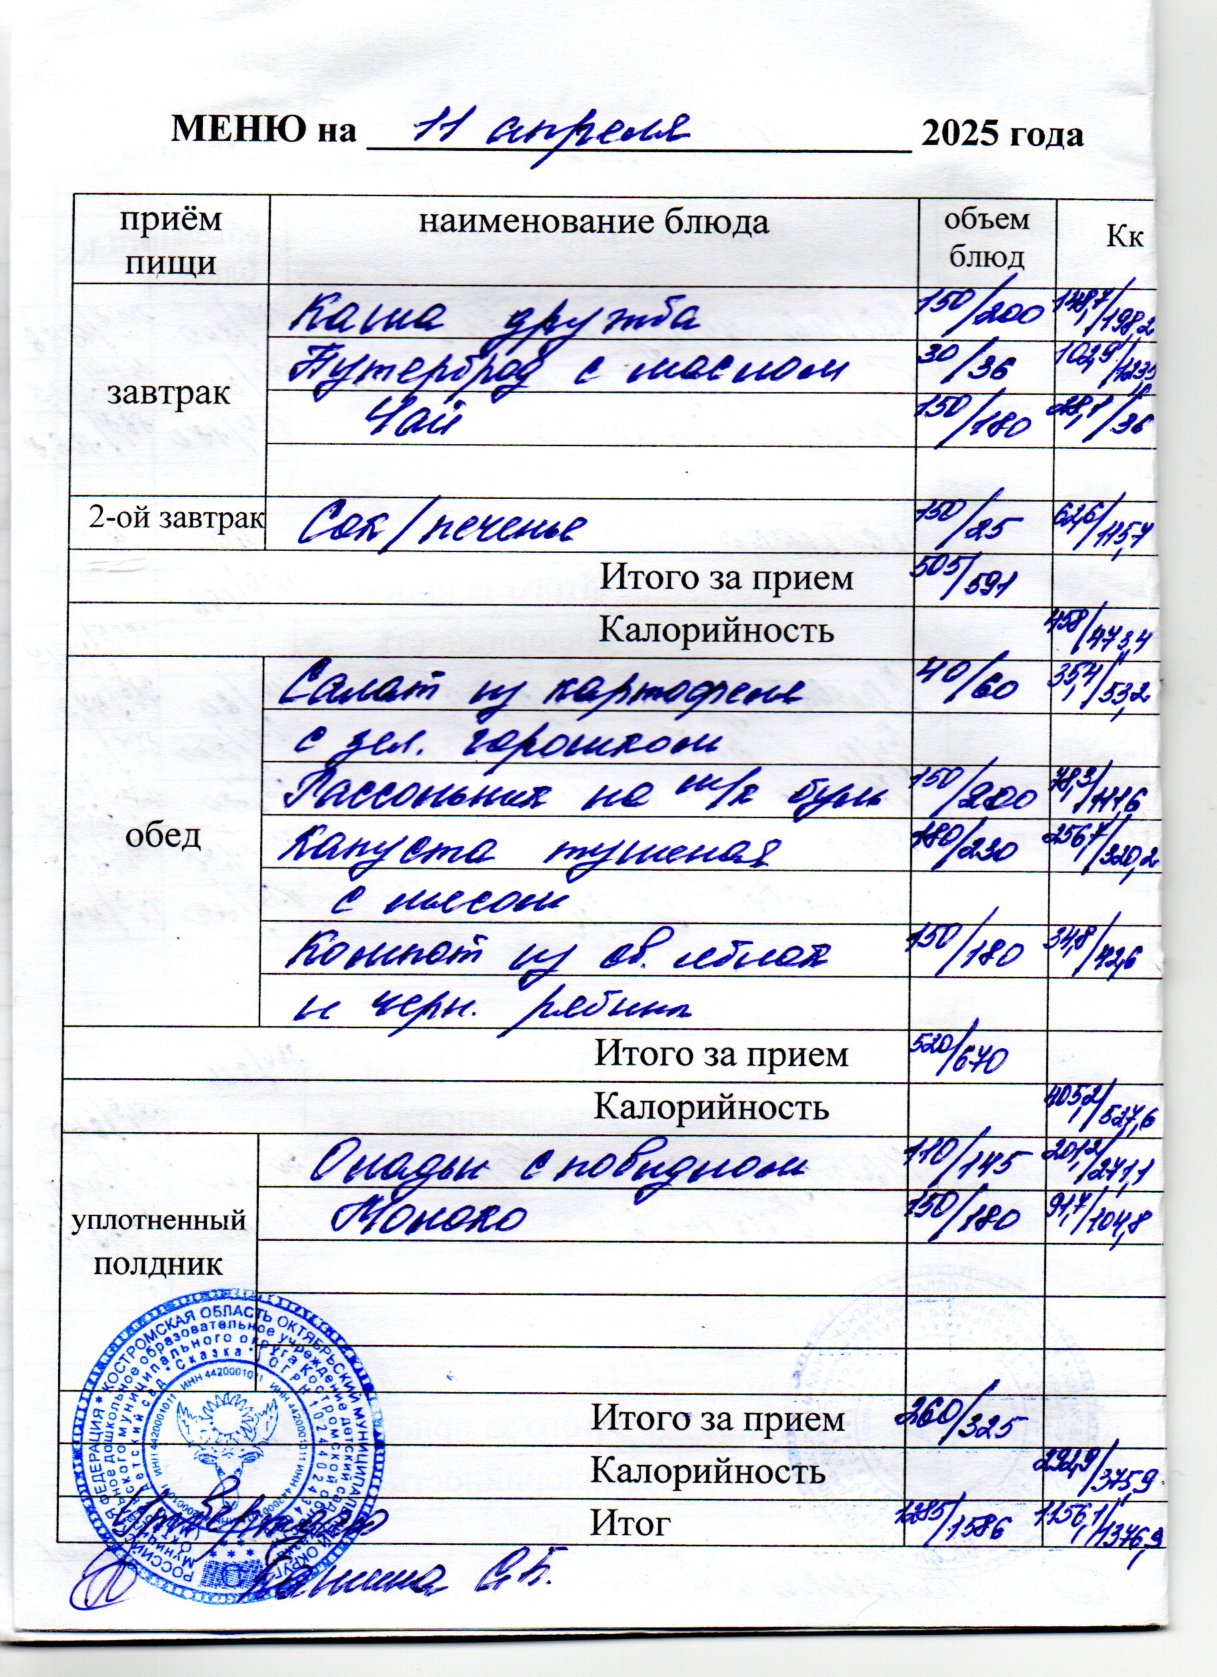 МЕНЮ на 11 апреля 2025 года
приём пищи наименование блюда объем блюд Кк
завтрак
Каша дружба 150/200 148,7/198,2
Бутерброд с маслом 30/36 102,9/123,5
Чай 150/180 28,1/36
2-ой завтрак Сок/печенье 150/25 62,6/115,7
Итого за прием 505/591
Калорийность 458/473,4
обед
Салат из картофеля 40/60 35,4/53,2
с зел. горошком
Рассольник на м/к бул 150/200 78,3/111,6
Капуста тушеная 180/230 256,7/320,2
с мясом
Компот из св. яблок 150/180 34,8/42,6
и черн. рябины
Итого за прием 520/670
Калорийность 405,2/527,6
уплотненный полдник
Оладьи с повидлом 110/145 201,2/271,1
Молоко 150/180 91,7/104,8
Итого за прием 260/325
Калорийность 292,9/375,9
Итог 1285/1586 1156,1/1376,9
РОССИЙСКАЯ ФЕДЕРАЦИЯ * КОСТРОМСКАЯ ОБЛАСТЬ ОКТЯБРЬСКИЙ МУНИЦИПАЛЬНЫЙ ОКРУГ
дошкольное образовательное учреждение детский сад
муниципального округа Костромской
Детский сад "Сказка"
ИНН 4420001011